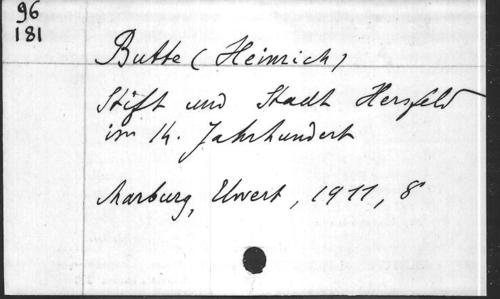 96
181
Butte (Heinrich)
Stift und Stadt Hersfeld
im 14. Jahrhundert
Marburg, Elwert, 1911, 8